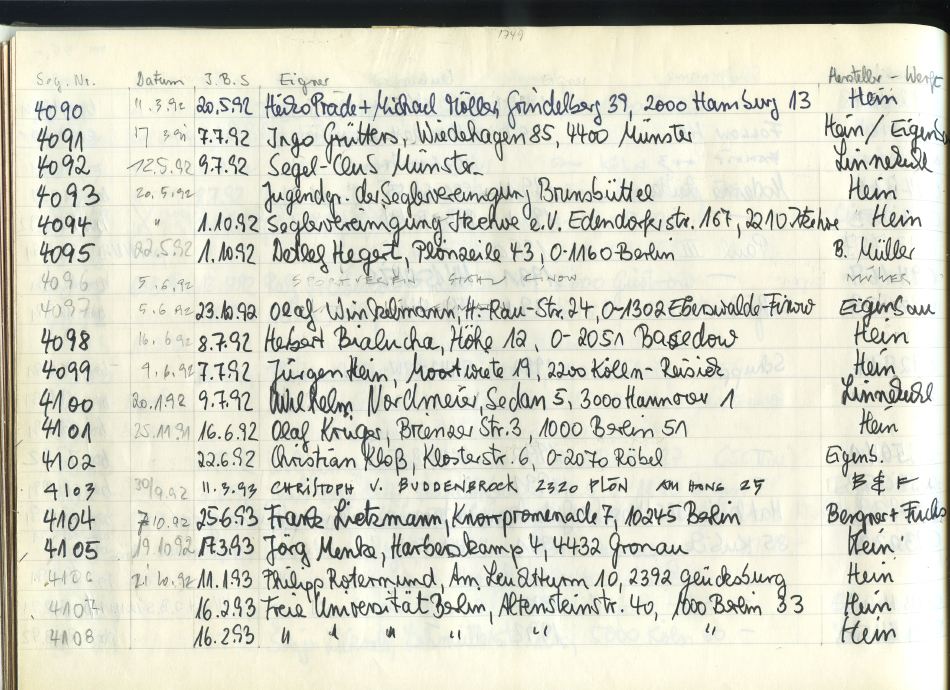 1749
Seg. Nr. Datum J.B.S Eigner Hersteller - Werft
4090 11.3.92 20.5.92 Heiko Prade + Michael Möller, Grindelberg 39, 2000 Hamburg 13 Hein
4091 17 7.7.92 Ingo Grütters, Wiedehagen 85, 4400 Münster Hein / Eigenb
4092 12.5.92 9.7.92 Segel-Club Münster Linnekuhl
4093 20.5.92 Jugendgr. der Seglervereinigung Brunsbüttel Hein
4094 " 1.10.92 Seglervereinigung Itzehoe e.V. Edendorferstr. 167, 2210 Itzehoe Hein
4095 22.5.92 1.10.92 Detlef Hegert, Plönzeile 43, O-1160 Berlin B. Müller
4096 5.6.92
4097 5.6.92 23.10.92 Olaf Winkelmann, H.-Rau-Str. 24, O-1302 Eberswalde-Finow Eigenbau
4098 16.6.92 8.7.92 Herbert Bialucha, Höhe 12, O-2051 Basedow Hein
4099 9.6.92 7.7.92 Jürgen Hein, 19, 2200 Kölln-Reisiek Hein
4100 20.1.92 9.7.92 Wilhelm Nordmeier, Sedan 5, 3000 Hannover 1 Linnekuhl
4101 25.11.91 16.6.92 Olaf Krüger, Brienzer Str. 3, 1000 Berlin 51 Hein
4102 - 22.6.92 Christian Kloß, Klosterstr. 6, O-2070 Röbel Eigenb.
4103 30/9.92 11.3.93 CHRISTOPH V. BUDDENBROCK 2320 PLÖN AM HANG 25 B & F
4104 7.10.92 25.6.93 Frank Lietzmann, Knorrpromenade 7, 10245 Berlin Bergner + Fuchs
4105 19.10.92 17.3.93 Jörg Menke, Harberskamp 4, 4432 Gronau Hein
4106 21.10.92 11.1.93 Philipp Rotermund, Am Leuchtturm 10, 2392 Glücksburg Hein
4107 16.2.93 Freie Universität Berlin, Altensteinstr. 40, 1000 Berlin 33 Hein
4108 16.2.93 " " " " " " Hein